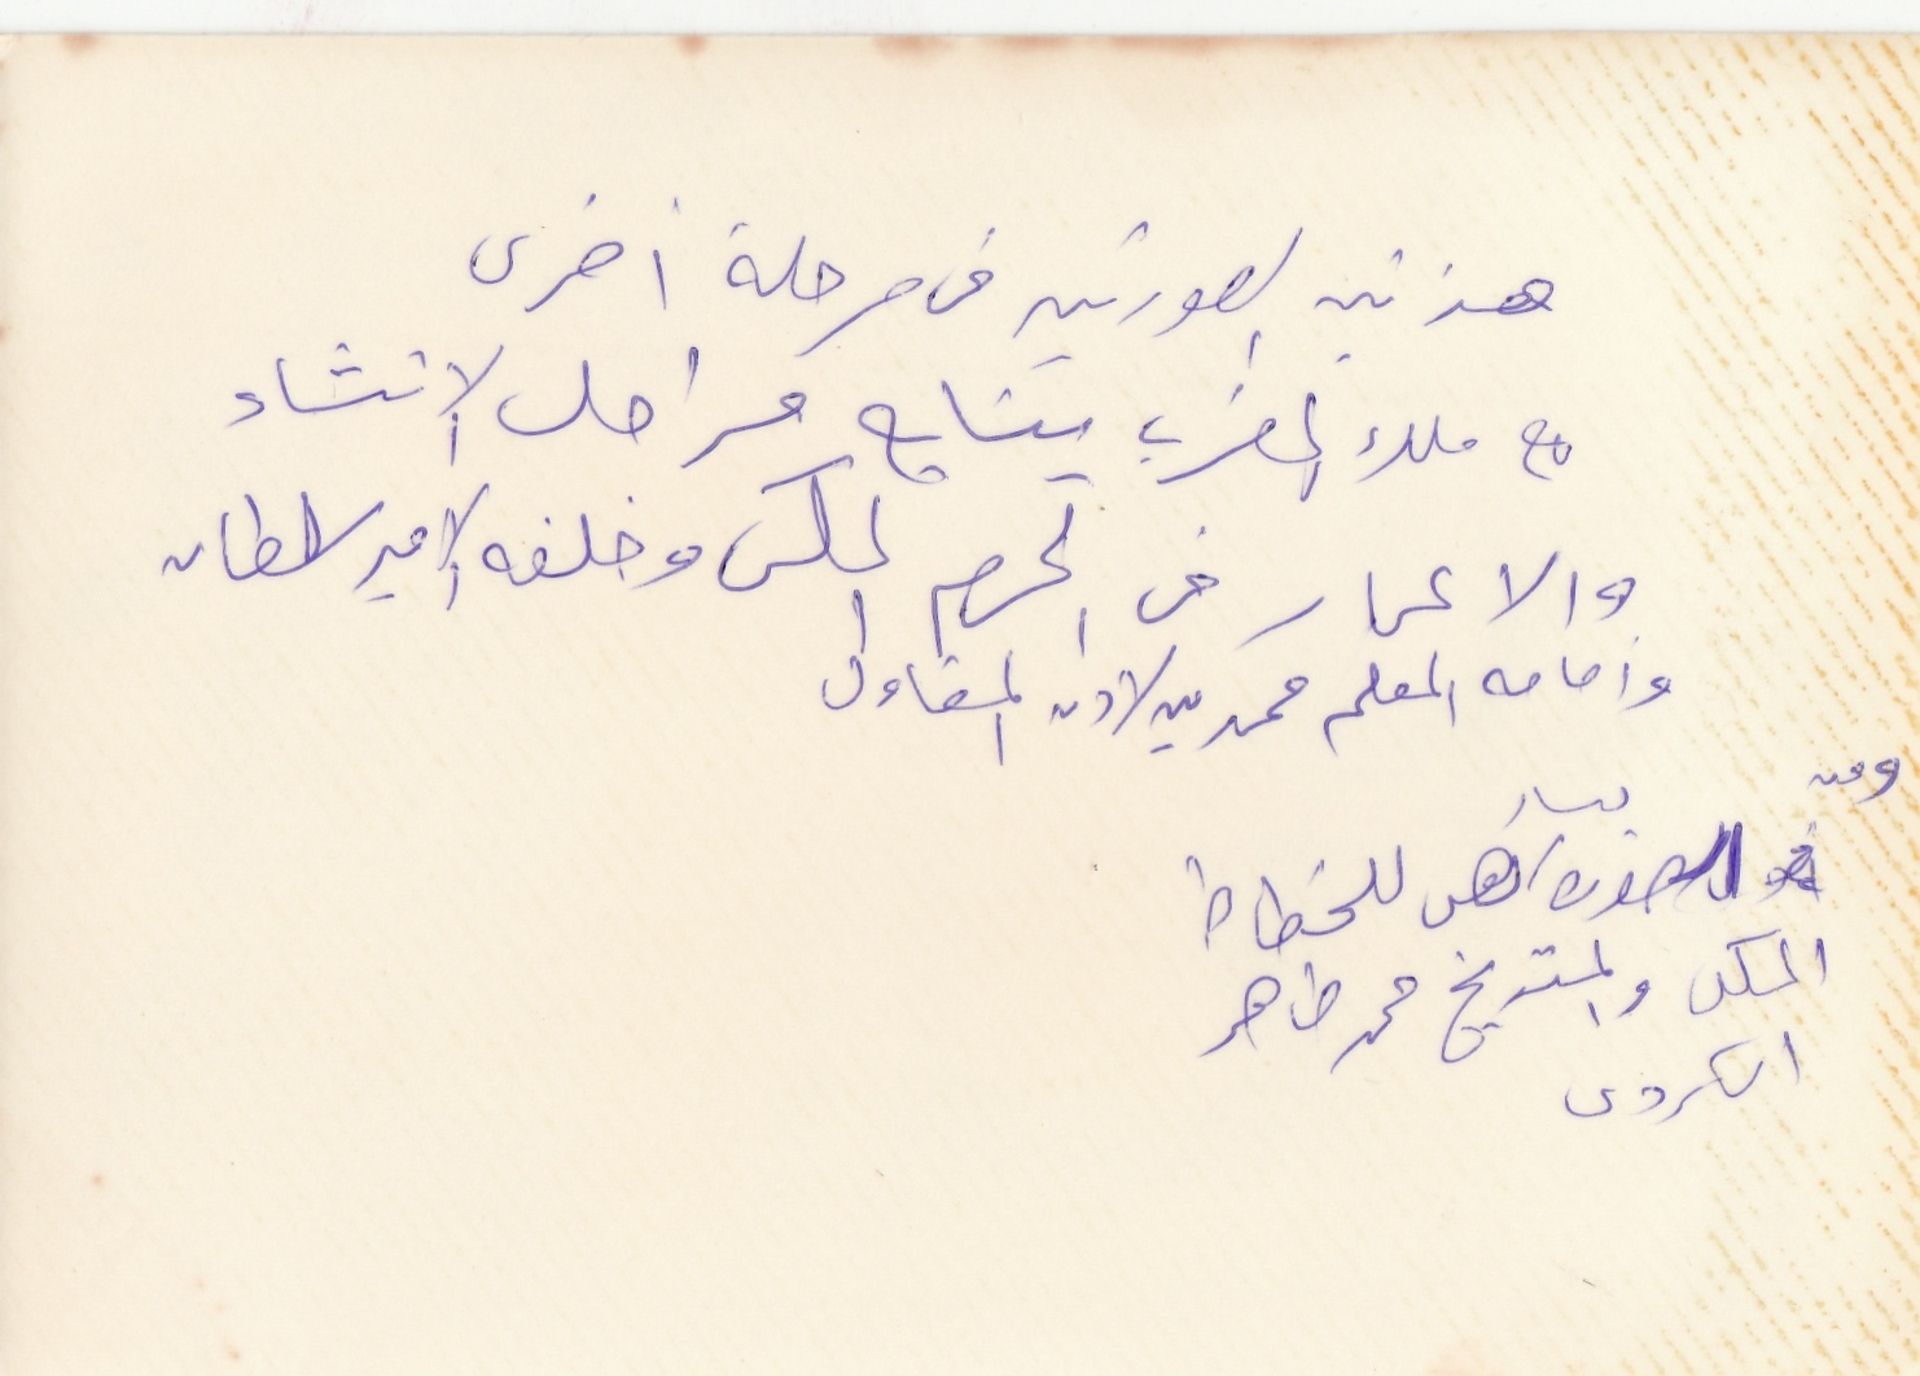 هذين الصورتين فى مرحلة أخرى
مع ملك المغرب يتابع مراحل الانشاء
والاعمار فى الحرم المكى وخلفه الامير سلطان
وأمامه المعلم محمد بن لادن المقاول
ومن
يسار
الصورة هى للخطاط
المكى والمؤرخ محمد طاهر
الكردى